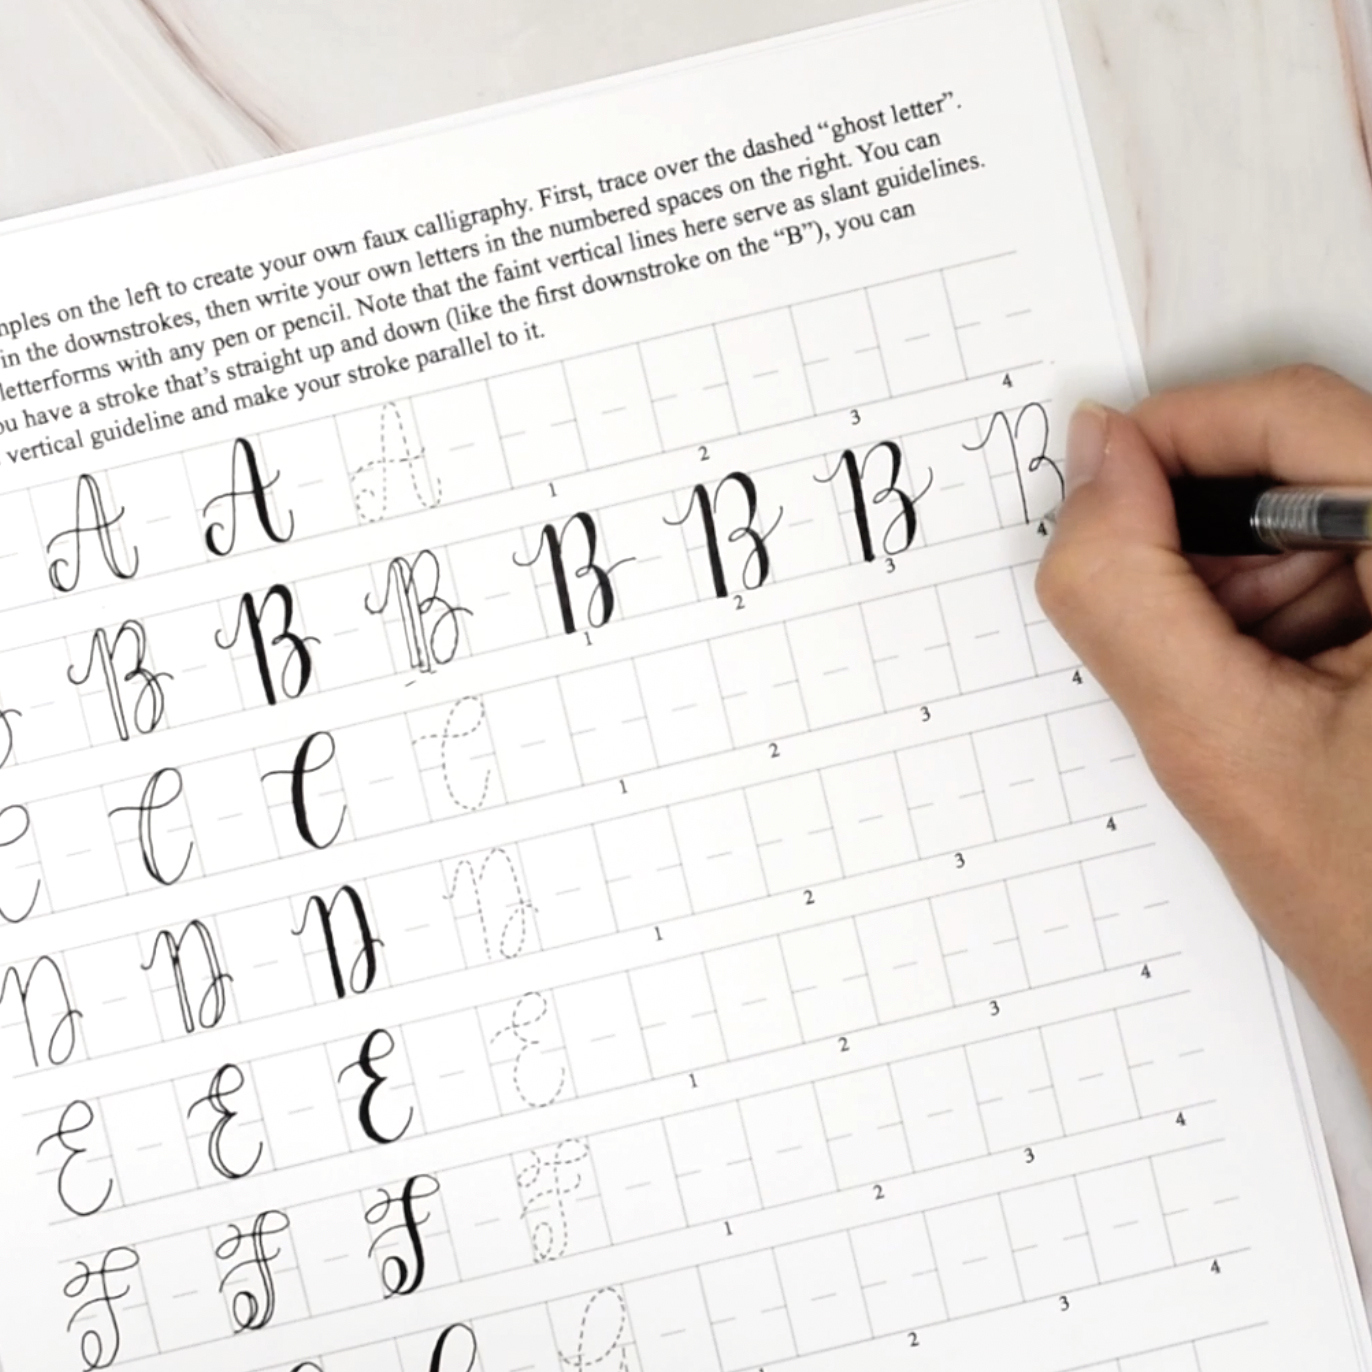 on the left to create your own faux calligraphy. First, trace over the dashed “ghost letter”.
in the downstrokes, then write your own letters in the numbered spaces on the right. You can
letterforms with any pen or pencil. Note that the faint vertical lines here serve as slant guidelines.
have a stroke that’s straight up and down (like the first downstroke on the “B”), you can
vertical guideline and make your stroke parallel to it.
A A A
1 2 3 4
B B B B B B B
1 2 3 4
C C C C
1 2 3 4
D D D D
1 2 3 4
E E E E
1 2 3 4
F F F F
1 2 3 4
2 3 4